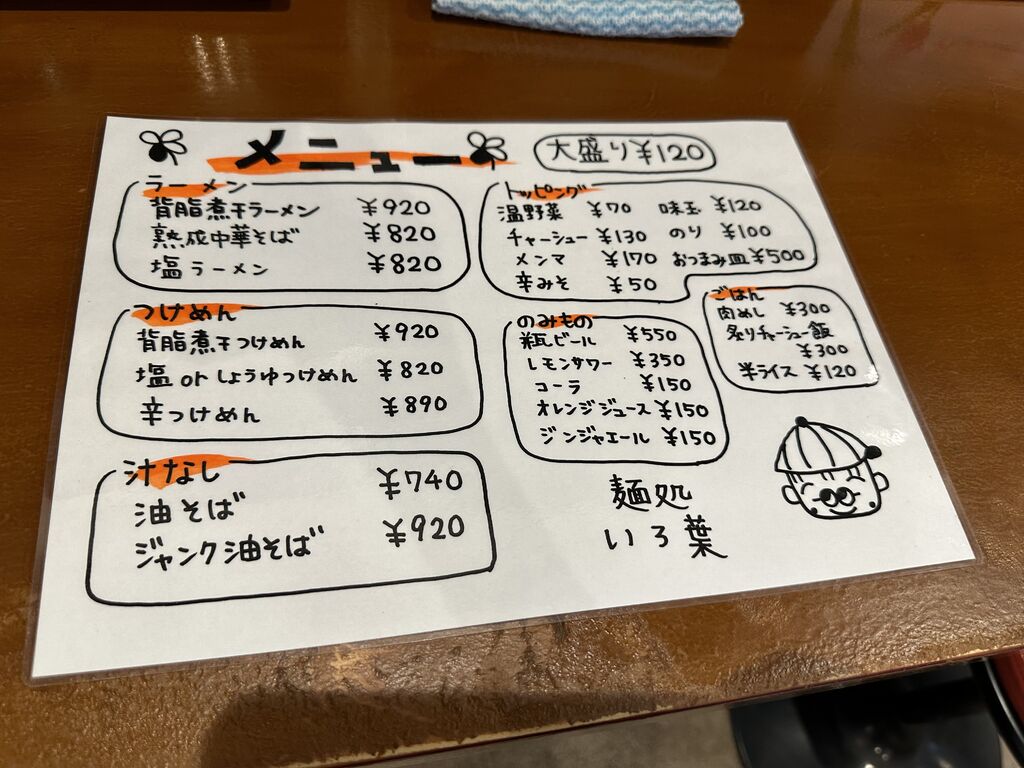 メニュー
大盛り¥120
ラーメン
背脂煮干ラーメン ¥920
熟成中華そば ¥820
塩ラーメン ¥820
つけめん
背脂煮干つけめん ¥920
塩orしょうゆつけめん ¥820
辛つけめん ¥890
汁なし
油そば ¥740
ジャンク油そば ¥920
トッピング
温野菜 ¥70 味玉 ¥120
チャーシュー ¥130 のり ¥100
メンマ ¥170 おつまみ皿 ¥500
辛みそ ¥50
のみもの
瓶ビール ¥550
レモンサワー ¥350
コーラ ¥150
オレンジジュース ¥150
ジンジャエール ¥150
ごはん
肉めし ¥300
炙りチャーシュー飯
¥300
半ライス ¥120
麺処
いろ葉